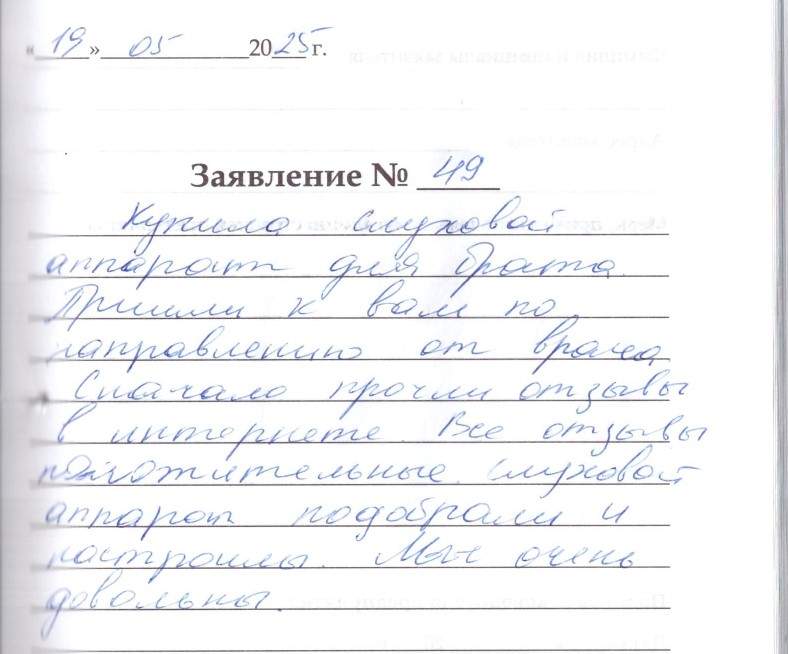 «19» 05 2025 г.
Заявление № 49
Купила слуховой
аппарат для брата.
Пришли к вам по
направлению от врача
Сначало прочли отзывы
в интернете. Все отзывы
положительные. Слуховой
аппарат подобрали и
настроилы. Мы очень
довольны.